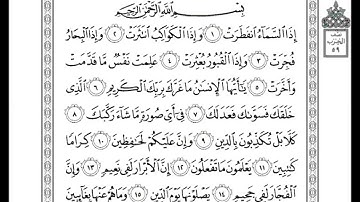 بِسْمِ اللَّهِ الرَّحْمَٰنِ الرَّحِيمِ
إِذَا السَّمَاءُ انفَطَرَتْ ١ وَإِذَا الْكَوَاكِبُ انتَثَرَتْ ٢ وَإِذَا الْبِحَارُ
فُجِّرَتْ ٣ وَإِذَا الْقُبُورُ بُعْثِرَتْ ٤ عَلِمَتْ نَفْسٌ مَّا قَدَّمَتْ
وَأَخَّرَتْ ٥ يَٰأَيُّهَا الْإِنسَٰنُ مَا غَرَّكَ بِرَبِّكَ الْكَرِيمِ ٦ الَّذِي
خَلَقَكَ فَسَوَّىٰكَ فَعَدَلَكَ ٧ فِي أَيِّ صُورَةٍ مَّا شَاءَ رَكَّبَكَ ٨
كَلَّا بَلْ تُكَذِّبُونَ بِالدِّينِ ٩ وَإِنَّ عَلَيْكُمْ لَحَٰفِظِينَ ١٠ كِرَامًا
كَٰتِبِينَ ١١ يَعْلَمُونَ مَا تَفْعَلُونَ ١٢ إِنَّ الْأَبْرَارَ لَفِي نَعِيمٍ ١٣ وَإِنَّ
الْفُجَّارَ لَفِي جَحِيمٍ ١٤ يَصْلَوْنَهَا يَوْمَ الدِّينِ ١٥ وَمَا هُمْ عَنْهَا بِغَائِبِينَ